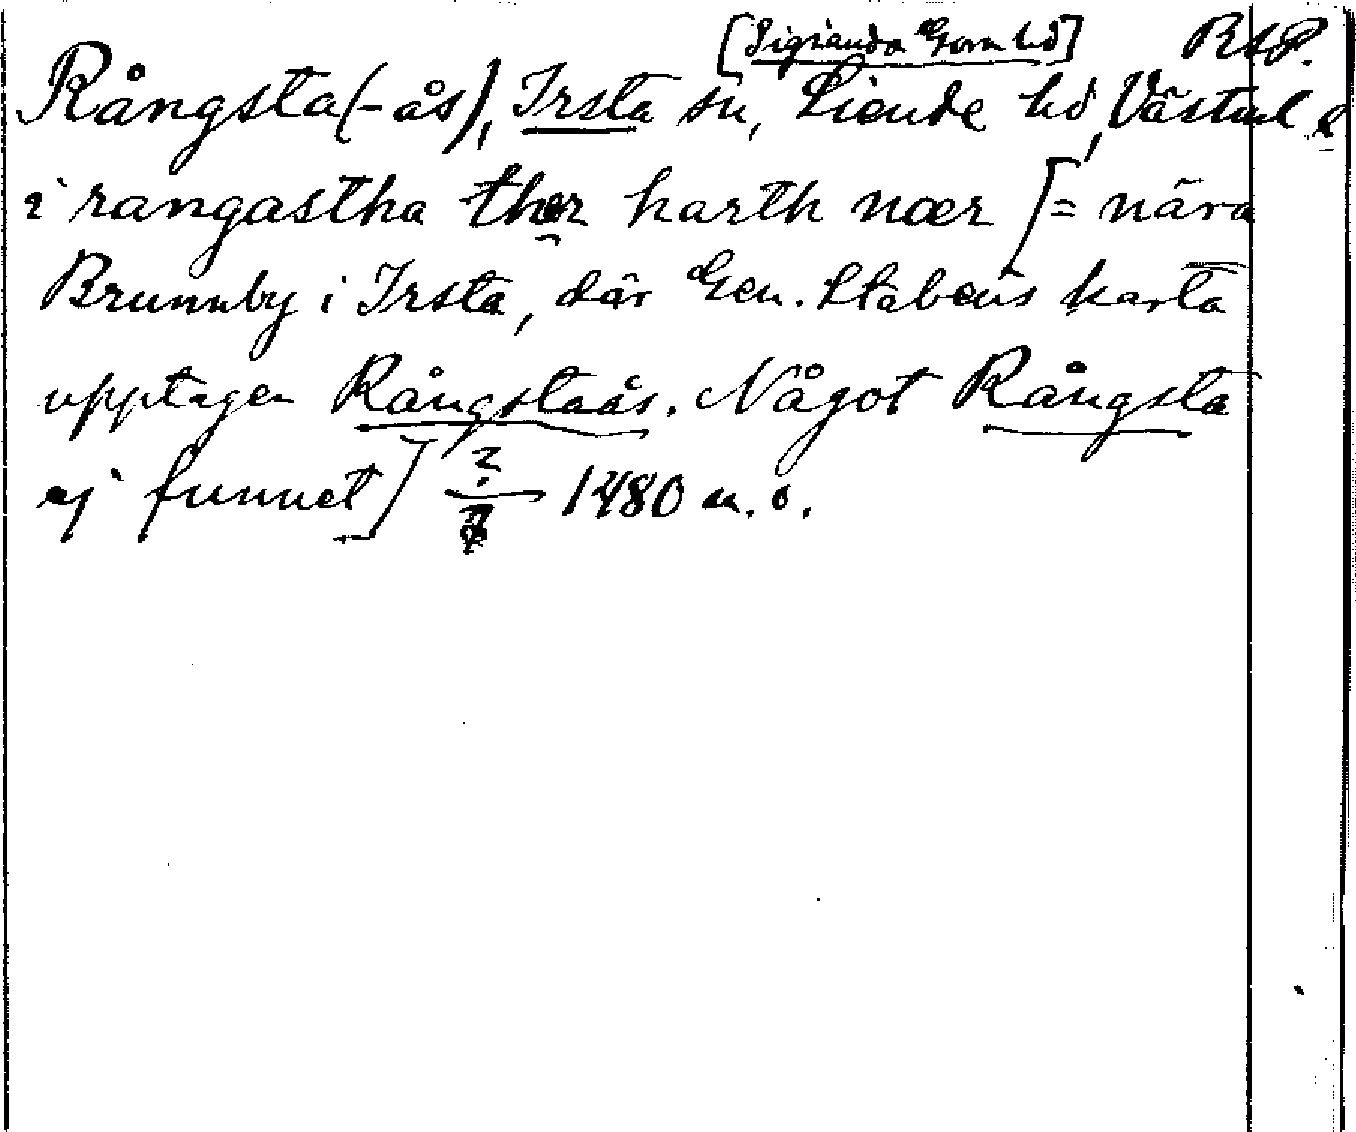 [Siende Gorn hd] RAP.
Rångsta (-ås), Irsta sn, Siende hd, Västml l
i rangastha ther harth nær [= nära
Brunnby i Irsta, där Gen. Stabens karta
upptager Rångstaås. Något Rångsta
ej funnet] ?/? 1480 m. o.